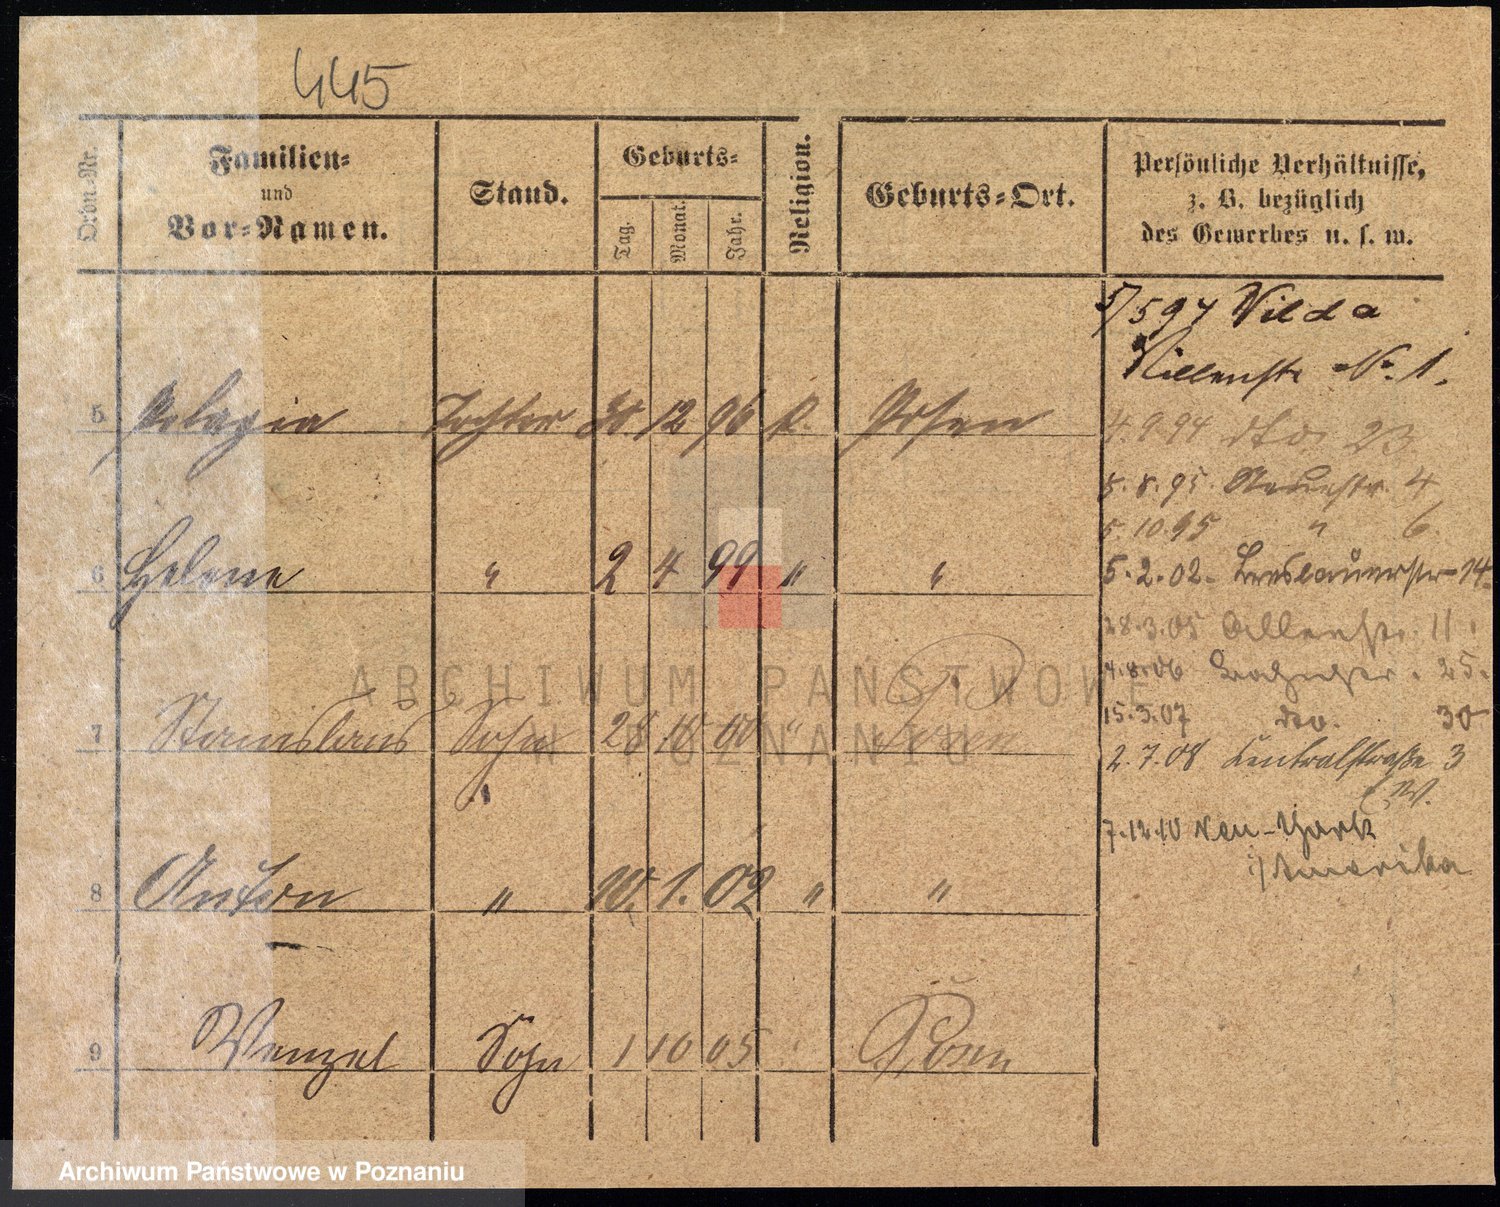 445
Ordn-Nr.
Familien=
und
Vor=Namen.
Stand.
Geburts=
Tag.
Monat.
Jahr.
Religion.
Geburts=Ort.
Persönliche Verhältnisse,
z. B. bezüglich
des Gewerbes u. s. w.
5 Pelagia Tochter 12 96 k. Posen
6 Helene " 2 4 99 " "
7 Stanislaus Sohn 28 10 00 " Posen
8 Anton " 1. 02 " "
9 Wenzel Sohn 1 10 05 Posen
5/5 94 Wilda
No. 1.
4.9.94 dto 23
5.8.95 4
5.10.95 " 6
5.2.02. Breslauerstr 14.
28.3.05 11.
4.8.06 25.
15.3.07 dto. 30
2.7.08 Centralstraße 3
W.
7.12.10 New-York
i/Amerika
ARCHIWUM PAŃSTWOWE
W POZNANIU
Archiwum Państwowe w Poznaniu